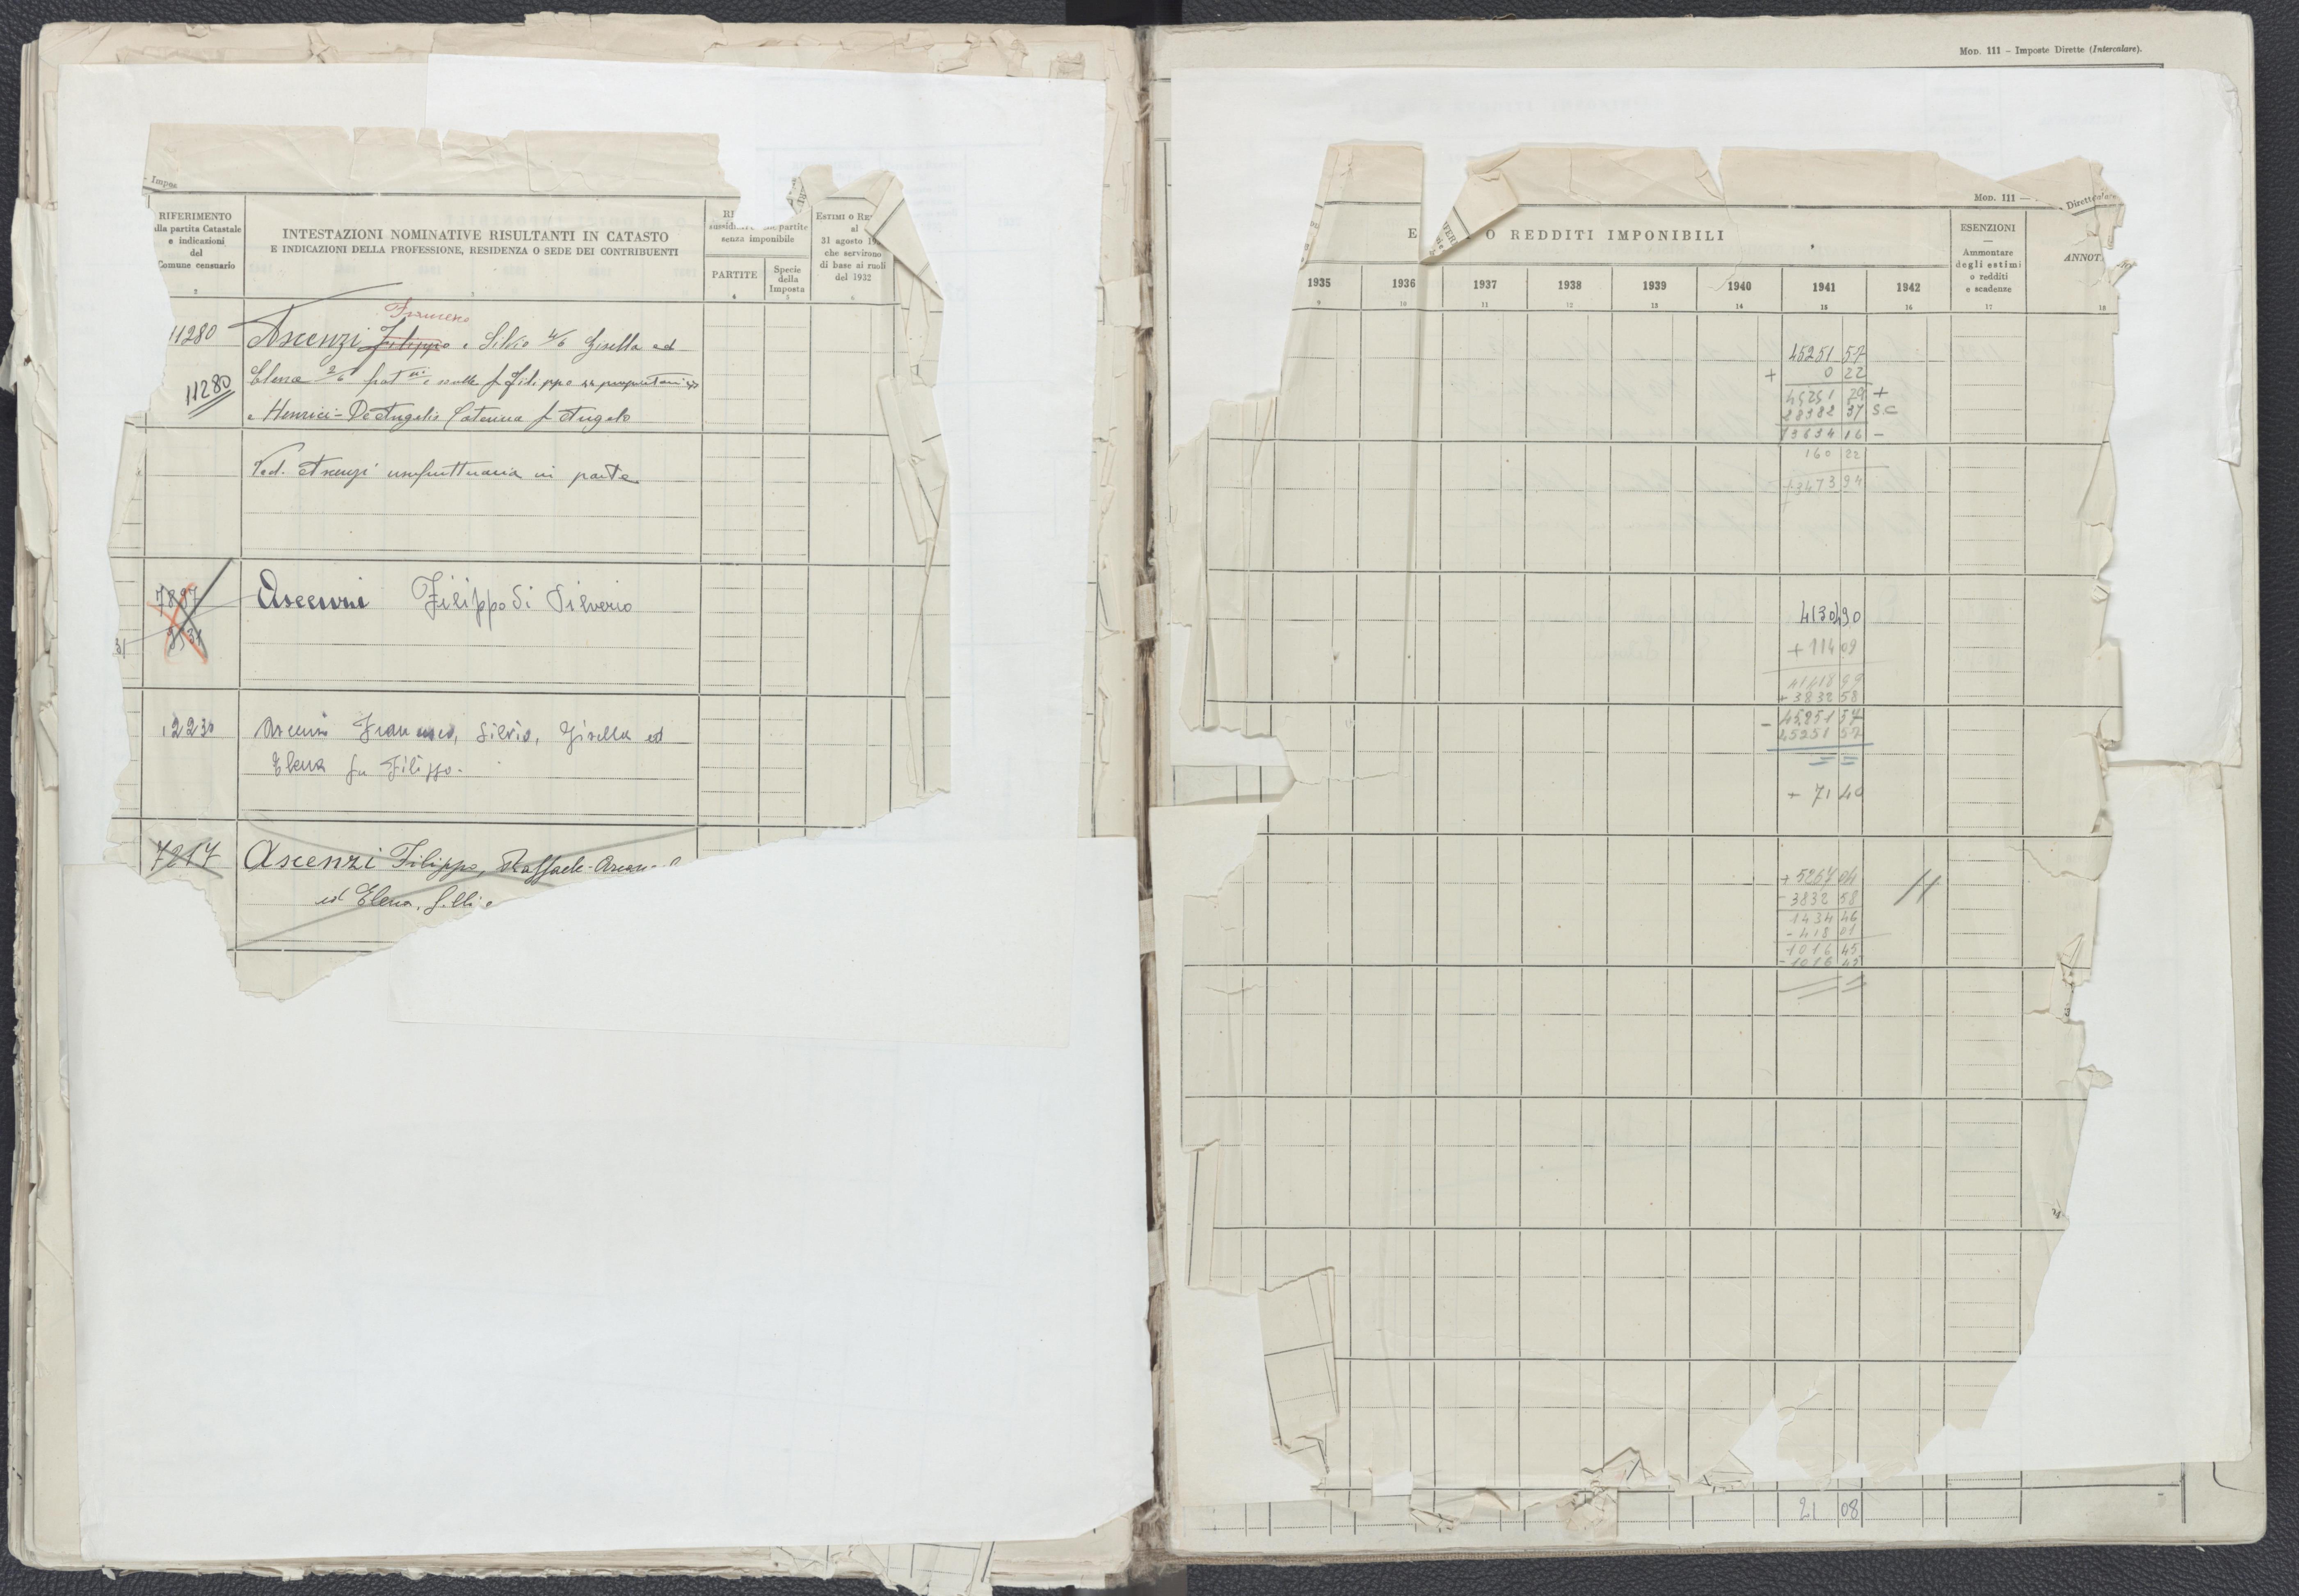 Mod. 111 – Imposte Dirette (Intercalare).
Impos
RIFERIMENTO
alla partita Catastale
e indicazioni
del
Comune censuario
2
INTESTAZIONI NOMINATIVE RISULTANTI IN CATASTO
E INDICAZIONI DELLA PROFESSIONE, RESIDENZA O SEDE DEI CONTRIBUENTI
3
partite
senza imponibile
PARTITE
4
Specie
della
Imposta
5
Estimi o Re
al
31 agosto 19
che servirono
di base ai ruoli
del 1932
6
Francesco
11280 Ascenzi Filippo e Silvio 4/6 Gisella ed
11280 Elena 2/6 frat e sorelle fu Filippo
e Henrici-De Angelis Caterina fu Angelo
Ved. Ascenzi usufruttuaria in parte
7897 Ascenzi Filippo di Silverio
31
12230 Ascenzi Francesco, Silvio, Gisella ed
Elena fu Filippo.
7217 Ascenzi Filippo, Raffaele
ed Elena, f.lli e
Mod. 111 — Dirette
E O REDDITI IMPONIBILI
1935 1936 1937 1938 1939 1940 1941 1942
9 10 11 12 13 14 15 16
ESENZIONI
Ammontare
degli estimi
o redditi
e scadenze
17
ANNOT.
18
45251 57
+ 0 22
45251 79 +
S.C
13634 16 –
160 22
13473 94
41304 90
+ 114 09
41418 99
+ 3832 58
– 45251 57
45251 57
= =
+ 71 40
+ 5267 04
- 3832 58
1434 46
- 418 01
1016 45
- 1016 45
21 08